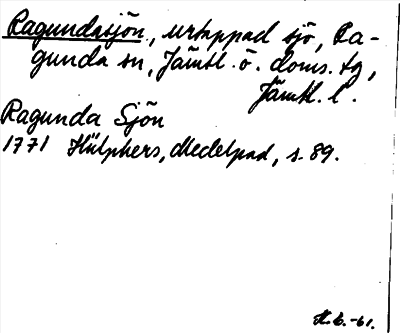 Ragundasjön, urtappad sjö, Ra-
gunda sn, Jämtl. ö. doms. tg,
Jämtl. l.
Ragunda Sjön
1771 Hülphers, Medelpad, s. 89.